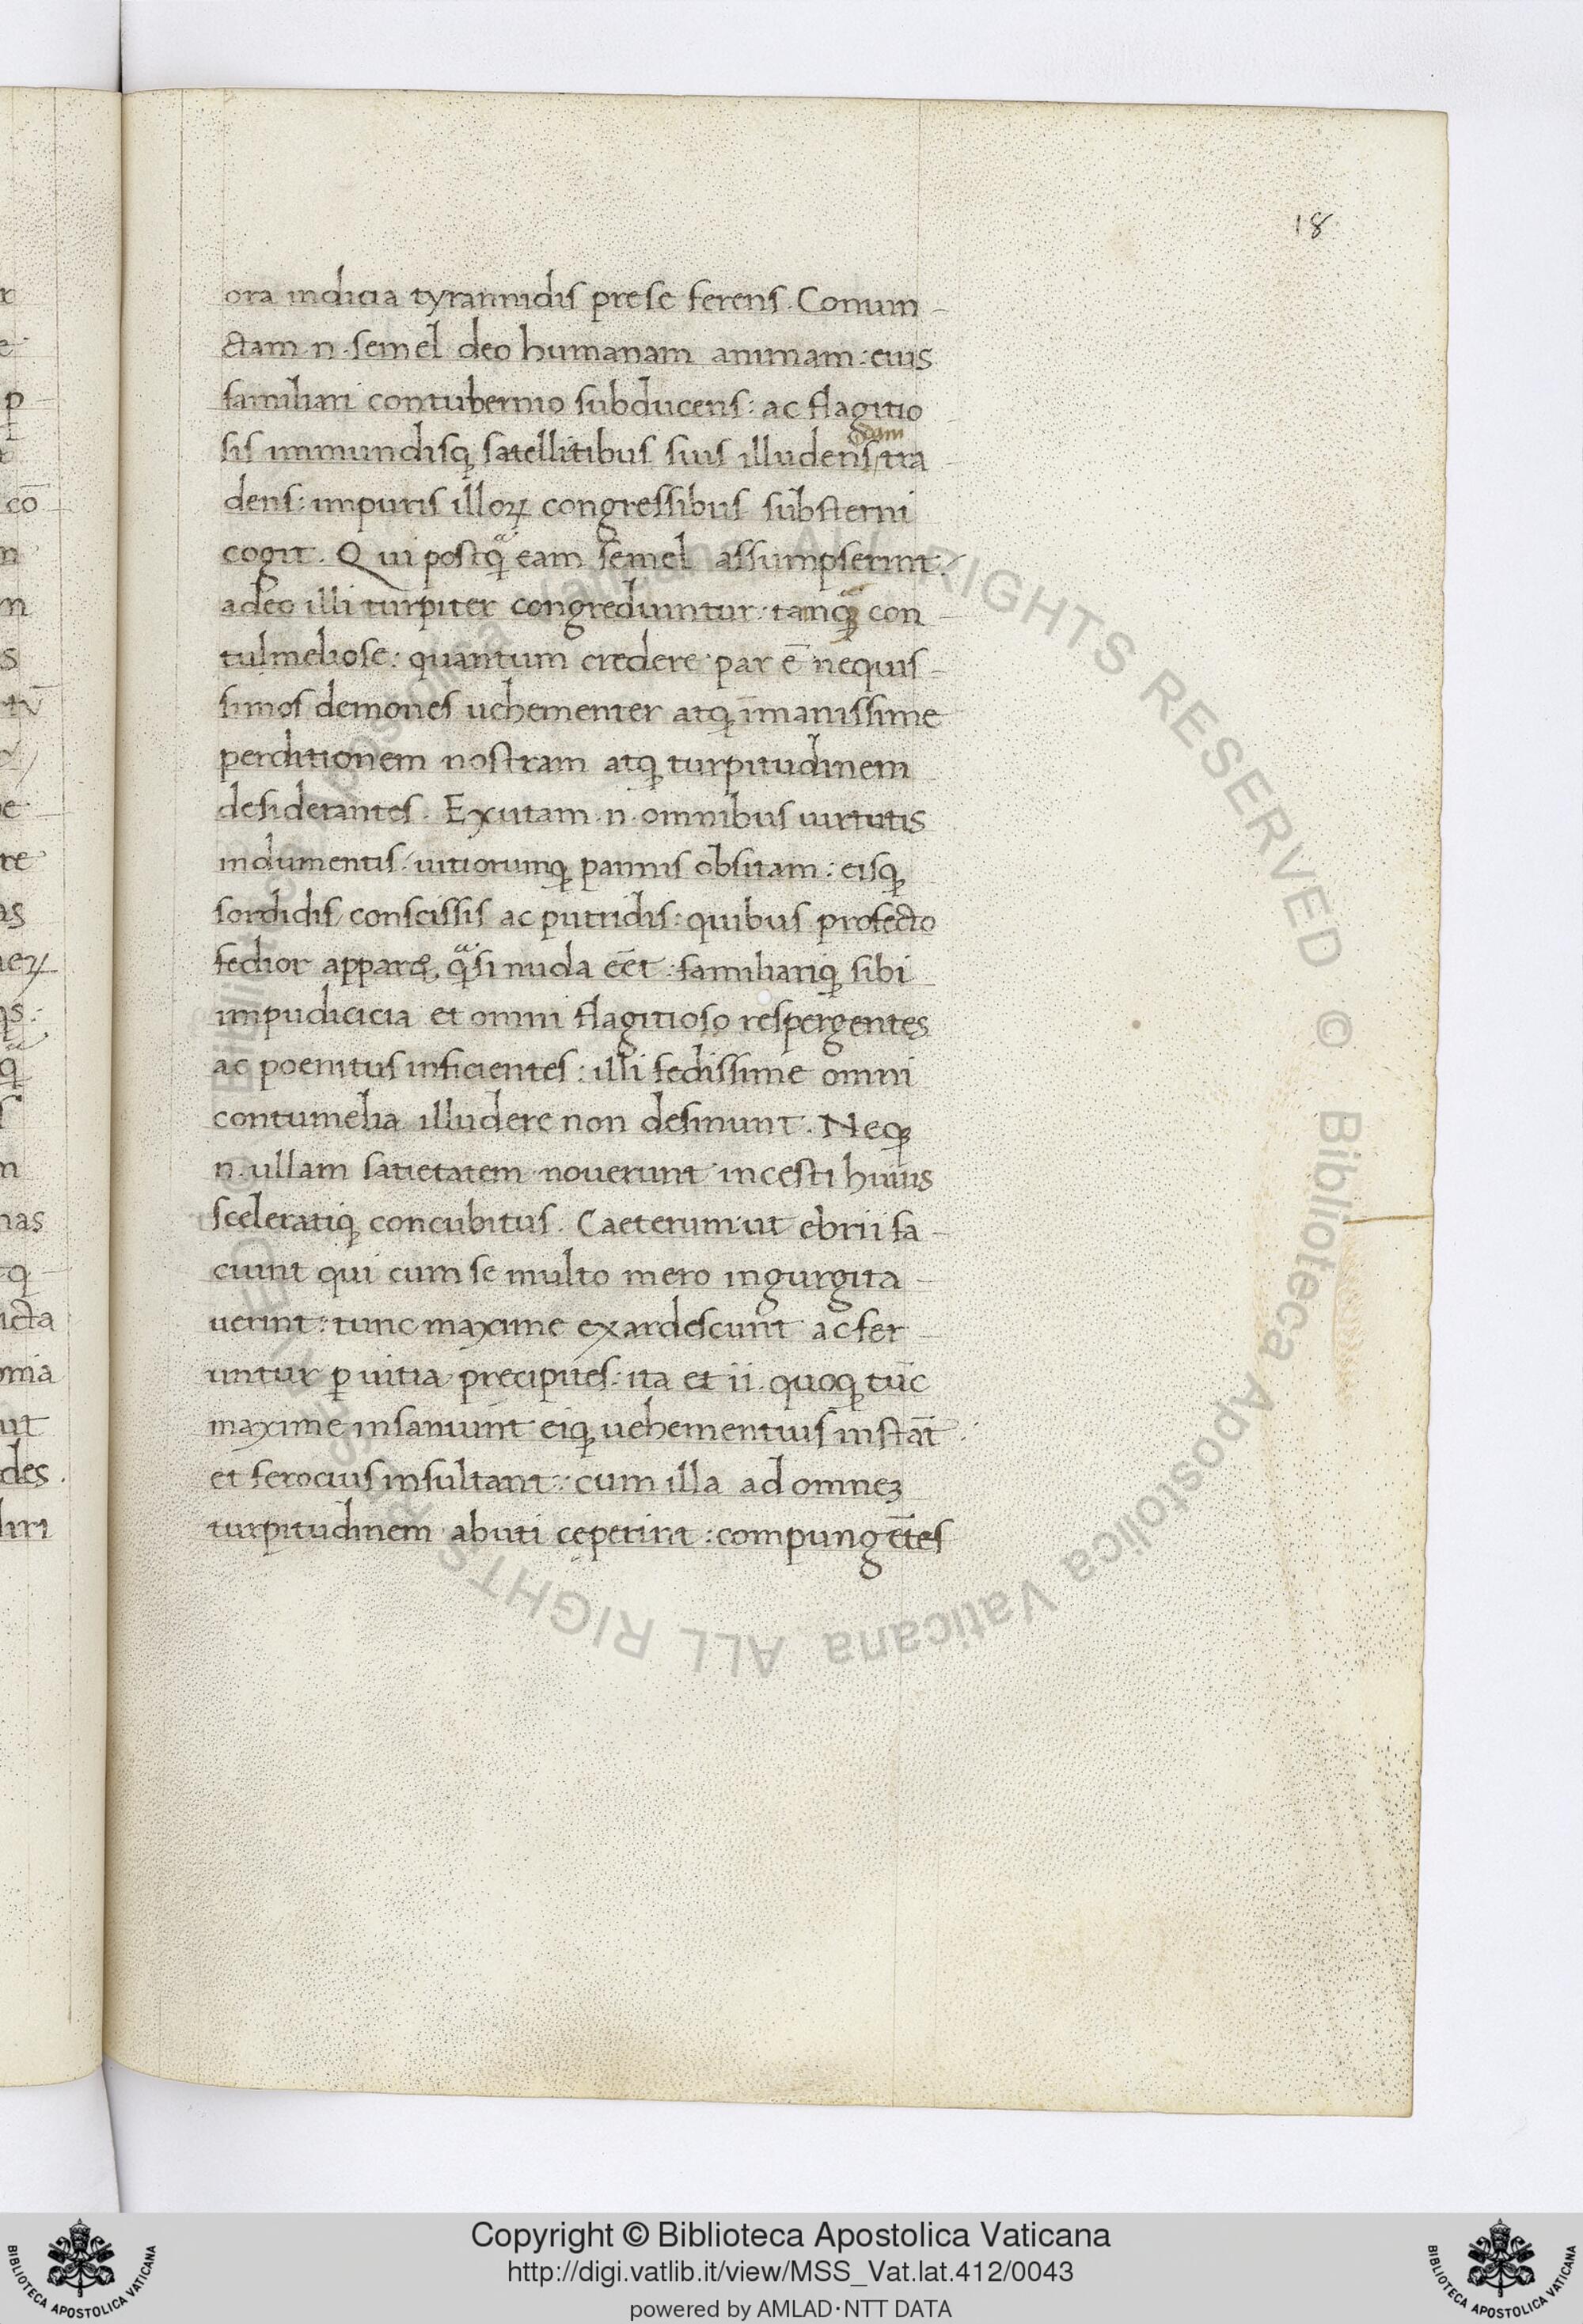 18
ora indicia tyrannidis prese ferens. Coniun-
ctam .n. semel deo humanam animam: eius
familiari contubernio subducens: ac flagitio
sis immundisq; satellitibus suis illudens/ tra-
dens: impuris illoꝝ congressibus substerni
cogit. Qui postq̃ eam semel assumpserint:
adeo illi turpiter congrediuntur: tanq̃ con-
tulmeliose: quantum credere par ē nequis-
simos demones uehementer atq; īmanissime
perditionem nostram atq; turpitudinem
desiderantes. Exutam .n. omnibus uirtutis
indumentis/ uitiorumq; pannis obsitam: eisq;
sordidis/ conscissis ac putridis: quibus profecto
fedior q̃si nuda eēt: familiariq; sibi
impudicicia et omni flagitioso respergentes
ac poenitus inficientes: illi fedissime omni
contumelia illudere non desinunt. Neq;
.n. ullam satietatem nouerunt incesti huius
sceleratiq; concubitus. Caeterum ut ebrii fa-
ciunt qui cum se multo mero ingurgita-
uerint: tunc maxime exardescunt ac fer-
untur ꝑ uitia precipites: ita et ii quoq; tūc
maxime insaniunt eiq; uehementius instāt
et ferocius insultant: cum illa ad omneꝫ
turpitudinem abuti ceperint: compungētes
Copyright © Biblioteca Apostolica Vaticana
http://digi.vatlib.it/view/MSS_Vat.lat.412/0043
powered by AMLAD·NTT DATA
BIBLIOTECA APOSTOLICA VATICANA
BIBLIOTECA APOSTOLICA VATICANA